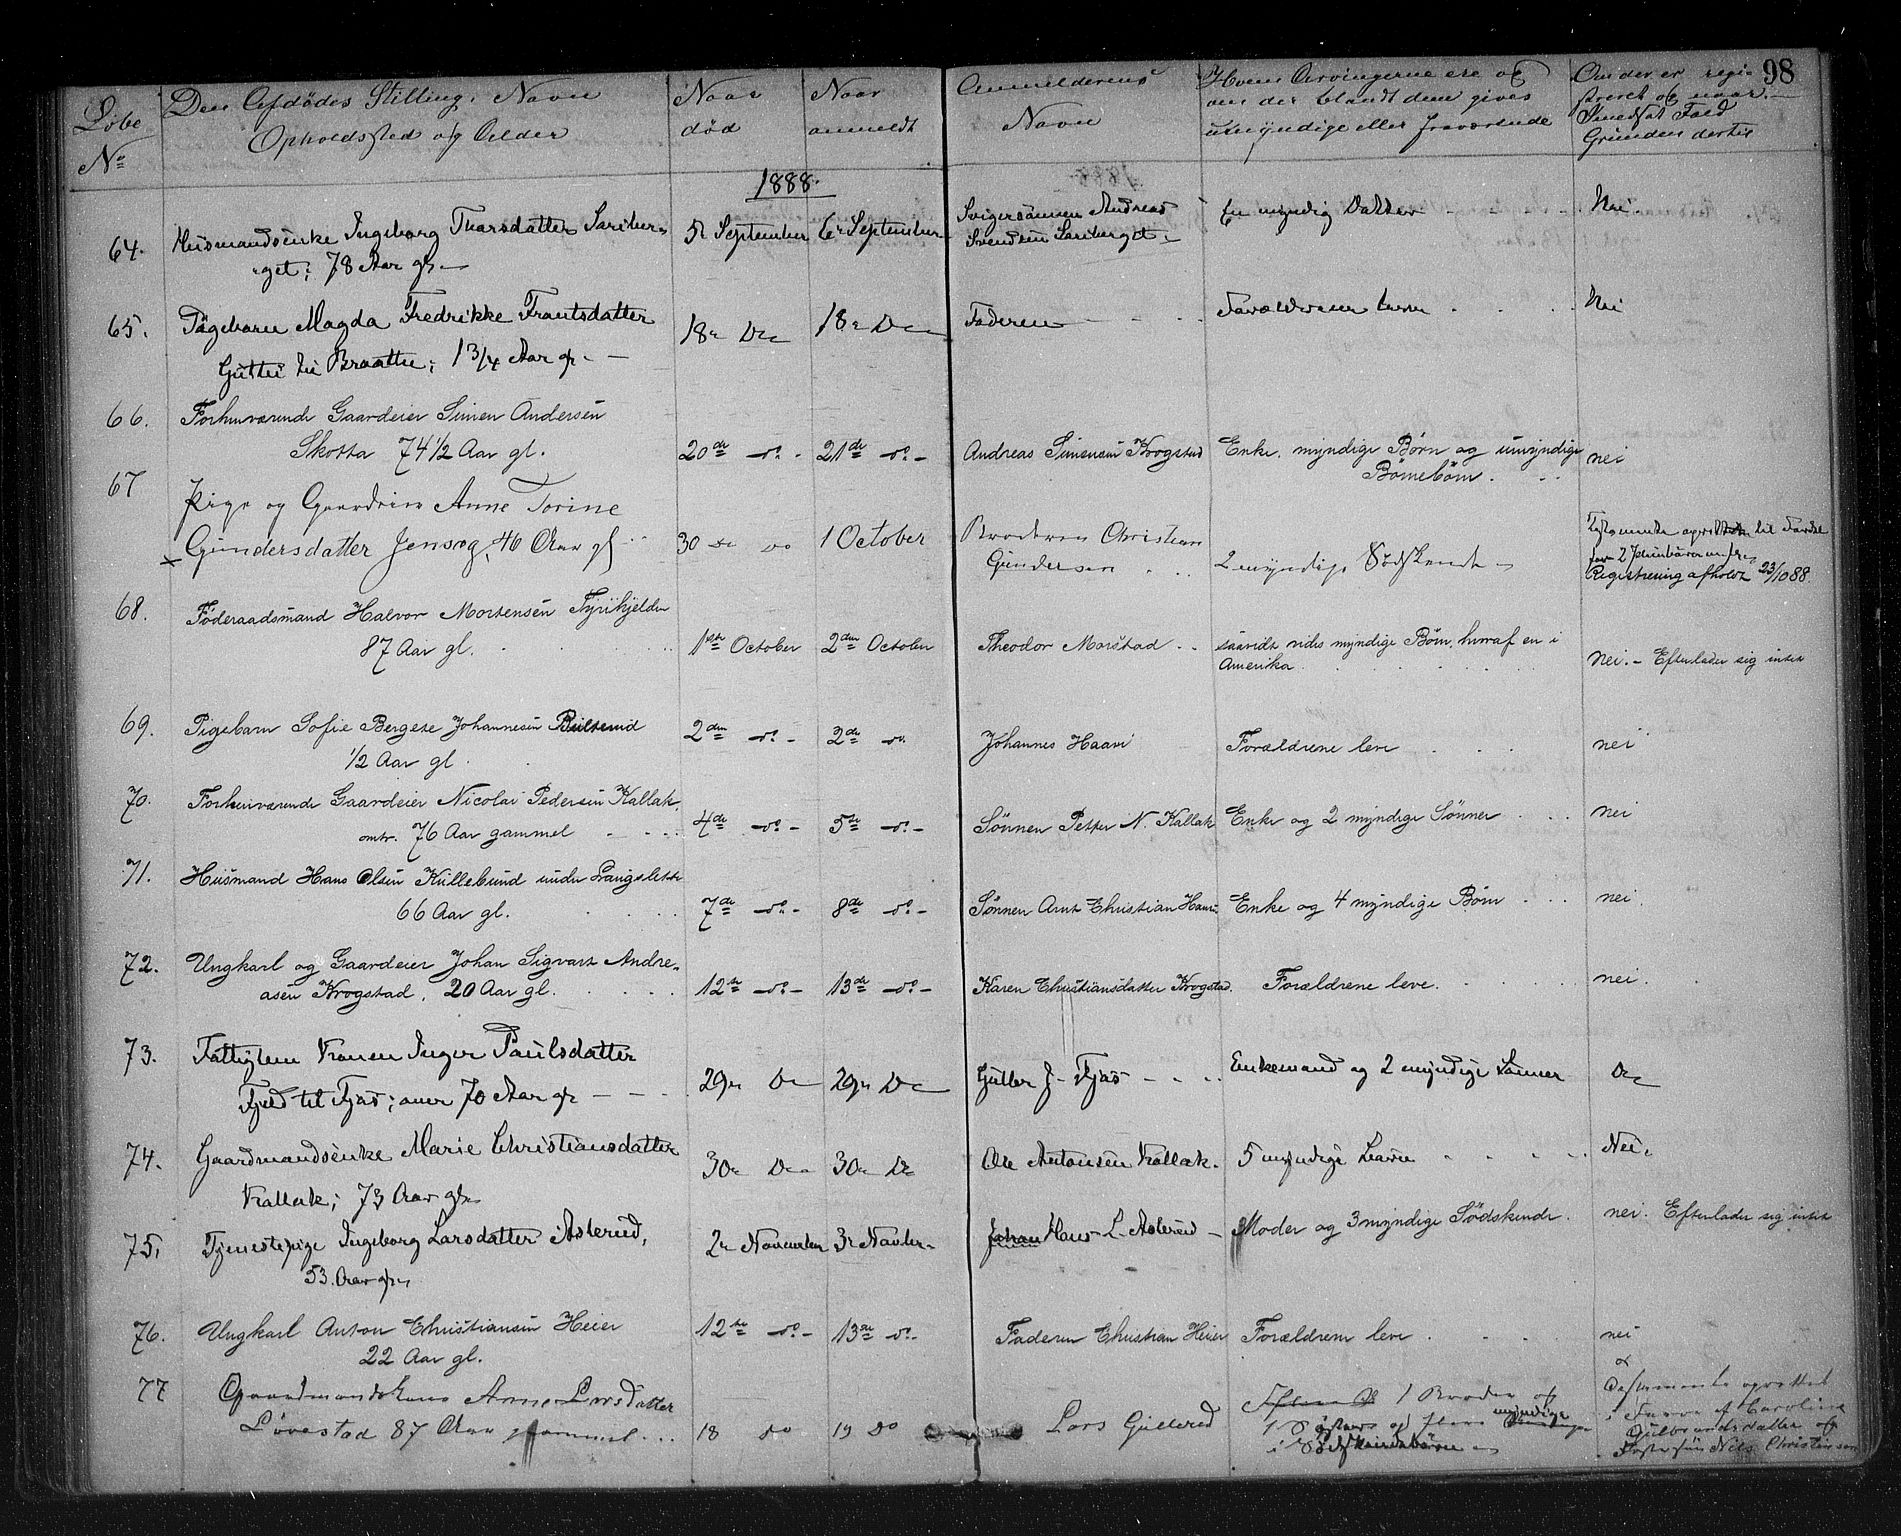 98
Løbe No
Den Afdødes Stilling, Navn
Opholdssted og Alder
Naar død
Naar anmeldt
Anmelderens Navn
Hvem Arvingerne ere og
om der blandt dem gives
umyndige eller fraværende
Om der er regi-
streret og naar.
Imodsat Fald
Grunden dertil
1888.
64. Husmandsenke Ingeborg Thorsdatter Sariber-
get; 78 Aar gl. 5 September 6 September Svigersønnen Andreas
Svendsen Sariberget. En myndig Datter Nei.
65. Pigebarn Magda Fredrikke Frantsdatter
Braaten; 1 3/4 Aar gl. 18 Do 18 Do Faderen Forældrene leve Nei
66. Forhenværende Gaardeier Simen Andersen
Skotta 74 1/2 Aar gl. 20de do. 21de do. Andreas Simensen Krogstad Enke, myndige Børn og umyndige
Børnebørn. nei
67 Pige og Gaardeier Anne Torine
x Gundersdatter Jensrg, 40 Aar gl 30 do 1 October Broderen Christian
Gundersen 2 myndige Sødskende
Testamente oprettet til Fordel
for 2
Registrering afholdt 23/10 88.
68. Føderaadsmand Halvor Mortensen Fyrikjelder
87 Aar gl. 1ste October 2den October Theodor Morstad saavidt vides myndige Børn, hvoraf en i
Amerika nei. - Efterlader sig intet
69. Pigebarn Sofie Bergete Johannesen
1/2 Aar gl. 2den do. 2de do. Johannes Haavi Forældrene leve nei
70. Forhenværende Gaardeier Nicolai Pedersen Kallak,
omtr. 76 Aar gammel 4de do. 5te do. Sønnen Petter N. Kallak Enke og 2 myndige Sønner nei
71. Husmand Hans Olsen Kullebund under Langslette
66 Aar gl. 7de do. 8de do. Sønnen Arnt Christian Hans. Enke og 4 myndige Børn nei.
72. Ungkarl og Gaardeier Johan Sigvart Andre-
asen Krogstad, 20 Aar gl. 12te do. 13de do. Karen Christiansdatter Krogstad. Forældrene leve. nei.
73. Fattiglem Konen Inger Paulsdatter
Fjeld til Tjas; over 70 Aar gl 29 Do 29 Do Guller J. Tjas Enkemand og 2 myndige Sønner Do
74. Gaardmandsenke Marie Christiansdatter
Kallak; 73 Aar gl. 30 Do 30 Do Ole Antonsen Kallak. 5 myndige Børn Nei.
75. Tjenestepige Ingeborg Larsdatter Aslerud,
53 Aar gl. 2 November 3 Novbr. Johan Hans L. Aslerud Moder og 3 myndige Sødskende. nei. Efterlader sig intet
76. Ungkarl Anton Christiansen Heier
22 Aar gl. 12te do. 13de do. Faderen Christian Heier Forældrene leve nei
77 Gaardmandskone Anne Larsdatter
Løvestad 87 Aar gammel 18 do 19 Do Lars Gullerud
1 Broder og
1 Søster og flere myndige
Sødskendebørn
Testamente oprettet
i Favør af Caroline
Gulbrandsdatter og
Nils Christiansen